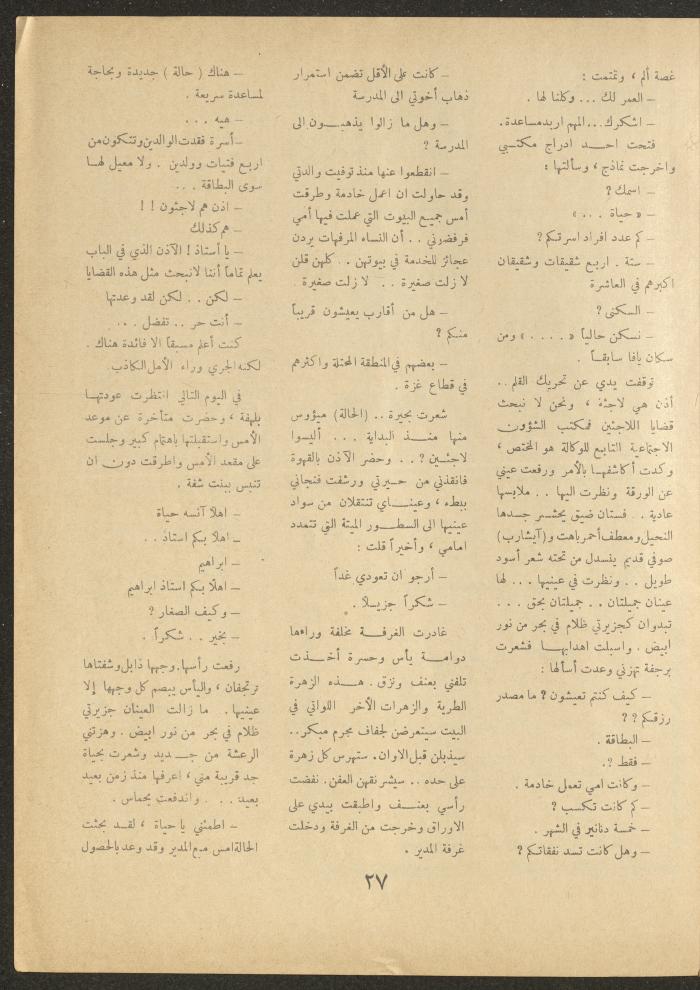 غصة ألم ، وتمتمت :
— العمر لك ... وكلنا لها .
— اشكرك... المهم اريد مساعدة.
فتحت احد ادراج مكتبي
واخرجت نماذج ، وسألتها :
— اسمك ؟
— « حياة ... »
— كم عدد افراد اسرتكم ؟
— ستة . اربع شقيقات وشقيقان
اكبرهم في العاشرة
— السكنى ؟
— نسكن حالياً « .... » ومن
سكان يافا سابقاً .
توقفت يدي عن تحريك القلم ..
أذن هي لاجئة ، ونحن لا نبحث
قضايا اللاجئين فمكتب الشؤون
الاجتماعية التابع للوكالة هو المختص ،
وكدت أكاشفها بالأمر ورفعت عيني
عن الورقة ونظرت اليها .. ملابسها
عادية .. فستان ضيق يحشر جسدها
النحيل ومعطف أحمر باهت و(آيشارب)
صوفي قديم ينسدل من تحته شعر أسود
طويل .. ونظرت في عينيها ... لها
عينان جميلتان .. جميلتان بحق ...
تبدوان كجزيرتي ظلام في بحر من نور
ابيض . واسبلت اهدابها فشعرت
برجفة تهزني وعدت أسألها :
— كيف كنتم تعيشون ؟ ما مصدر
رزقكم ؟ ؟
— البطاقة .
— فقط ؟.
— وكانت امي تعمل خادمة .
— كم كانت تكسب ؟
— خمسة دنانير في الشهر .
— وهل كانت تسد نفقاتكم ؟
— كانت على الأقل تضمن استمرار
ذهاب أخوتي الى المدرسة
— وهل ما زالوا يذهبون الى
المدرسة ؟
— انقطعوا عنها منذ توفيت والدتي
وقد حاولت ان اعمل خادمة وطرقت
أمس جميع البيوت التي عملت فيها أمي
فرفضوني .. أن النساء المرفهات يردن
عجائز للخدمة في بيوتهن .. كلهن قلن
لا زلت صغيرة .. لا زلت صغيرة .
— هل من أقارب يعيشون قريباً
منكم ؟
— بعضهم في المنطقة المحتلة واكثرهم
في قطاع غزة .
شعرت بحيرة .. (الحالة) ميؤوس
منها منذ البداية ... أليسوا
لاجئين ؟ .. وحضر الآذن بالقهوة
فانقذني من حيرتي ورشفت فنجاني
ببطء ، وعيناي تنتقلان من سواد
عينيها الى السطور الميتة التي تتمدد
امامي ، وأخيراً قلت :
— أرجو ان تعودي غداً
— شكراً جزيلا .
غادرت الغرفة مخلفة وراءها
دوامة يأس وحسرة أخذت
تلفني بعنف ونزق . هذه الزهرة
الطرية والزهرات الأخر اللواتي في
البيت سيتعرضن لجفاف مجرم مبكر..
سيذبلن قبل الاوان. ستهرس كل زهرة
على حده .. سيشرنقهن العفن. نفضت
رأسي بعنف واطبقت بيدي على
الاوراق وخرجت من الغرفة ودخلت
غرفة المدير .
— هناك ( حالة ) جديدة وبحاجة
لمساعدة سريعة .
— هيه ...
— أسرة فقدت الوالدين وتتكون من
اربع فتيات وولدين . ولا معيل لها
سوى البطاقة ...
— اذن هم لاجئون ! !
— هم كذلك
— يا أستاذ ! الآذن الذي في الباب
يعلم تماماً أننا لا نبحث مثل هذه القضايا
— لكن .. لكن لقد وعدتها
— أنت حر .. تفضل ...
كنت أعلم مسبقاً الا فائدة هناك .
لكنه الجري وراء الأمل الكاذب.
في اليوم التالي انتظرت عودتها
بلهفة ، وحضرت متأخرة عن موعد
الأمس واستقبلتها باهتمام كبير وجلست
على مقعد الأمس واطرقت دون ان
تنبس ببنت شفة .
— اهلا آنسه حياة
— اهلا بكم استاذ ..
— ابراهيم
— اهلا بكم استاذ ابراهيم
— وكيف الصغار ؟
— بخير .. شكراً .
رفعت رأسها. وجهها ذابل وشفتاها
ترتجفان ، واليأس يبصم كل وجهها إلا
عينيها . ما زالت العينان جزيرتي
ظلام في بحر من نور ابيض . وهزتني
الرعشة من جديد وشعرت بحياة
جد قريبة مني ، اعرفها منذ زمن بعيد
بعيد ... واندفعت بحماس .
— اطمئني يا حياة ، لقد بحثت
الحالة امس مع المدير وقد وعد بالحصول
٢٧